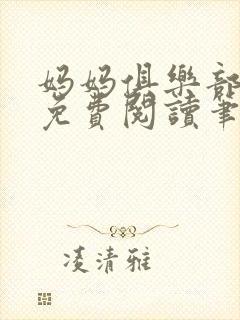 媽媽俱樂部
免費閱讀筆
凌清雅